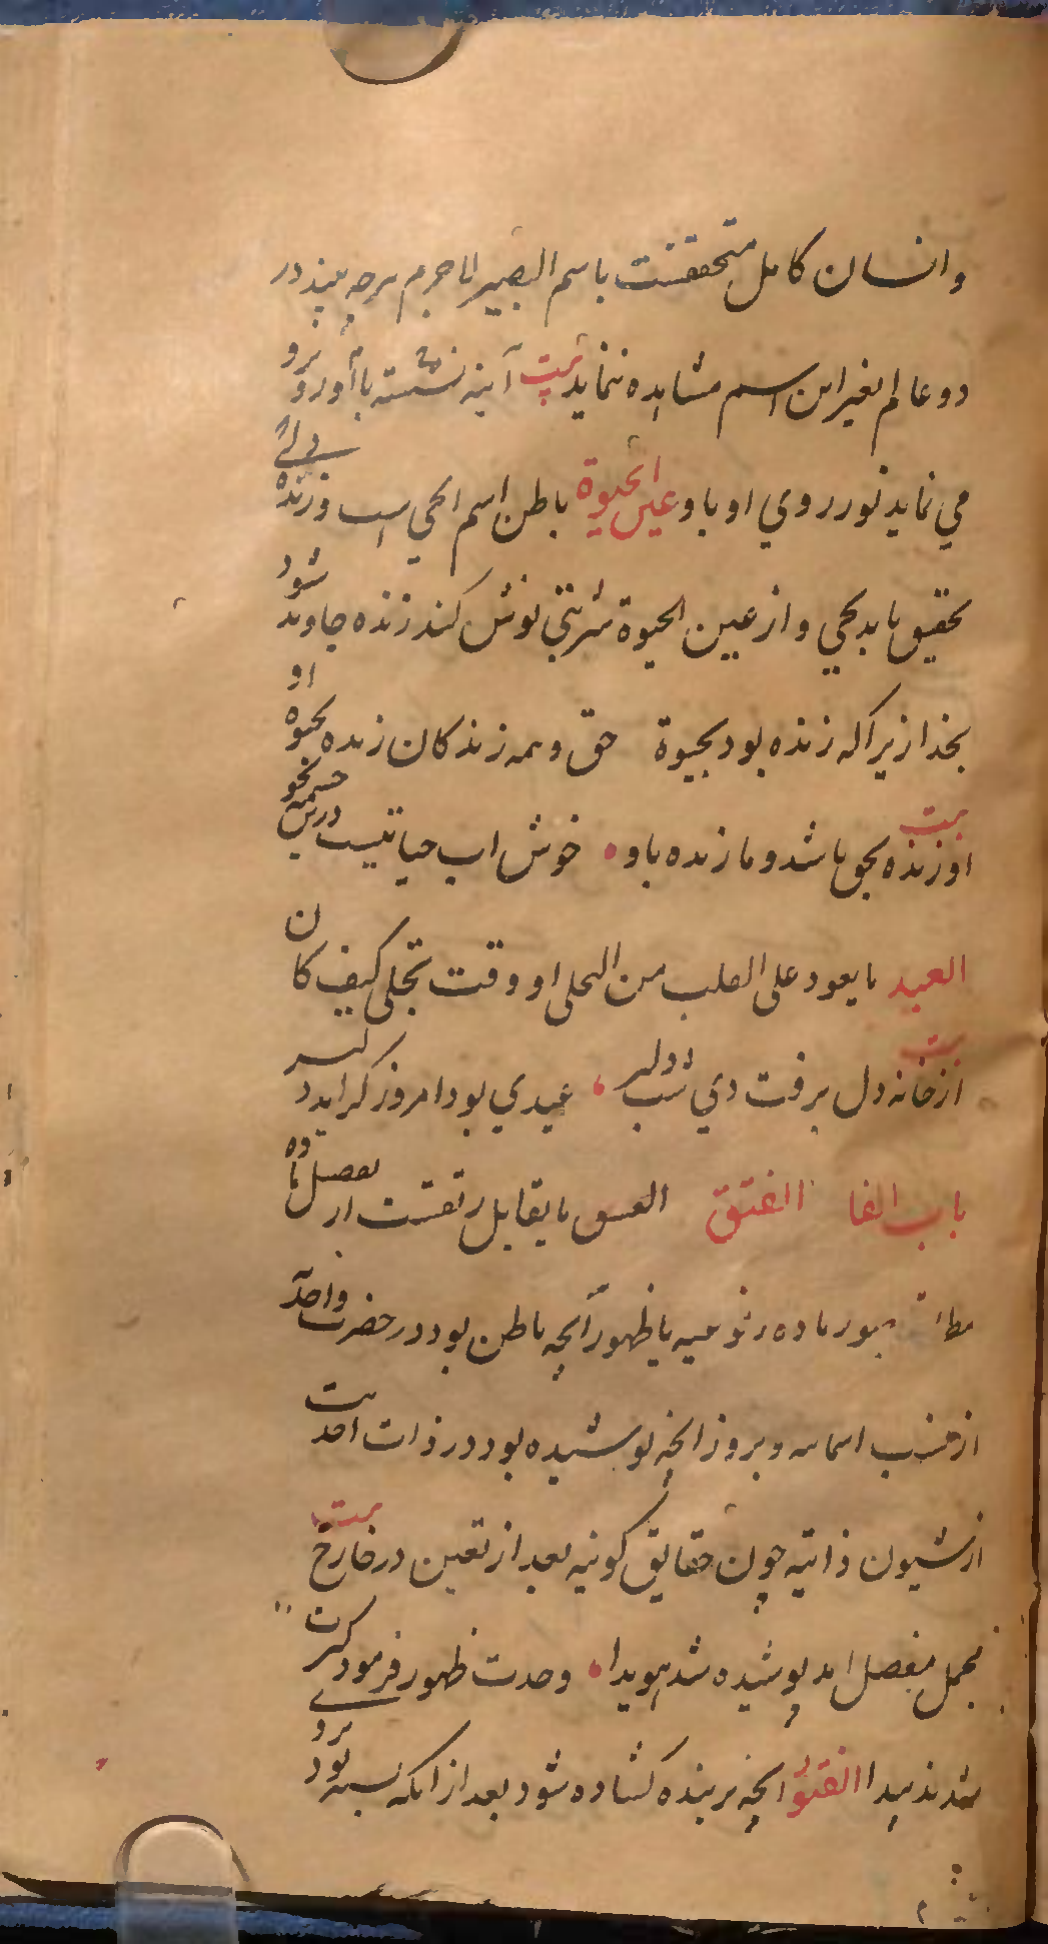 وانسان کامل متحققست باسم البصیر لاجرم هرچه بیند در
دو عالم بغیر این اسم مشاهده ننماید بیت آینه نشسته با او رو برو
می نماید نور روی او باو عین الحیوة باطن اسم الحی است و زنده دلی
تحقیق یابد بحی و از عین الحیوة شربتی نوش کند زنده جاوید شود
بخدا زیرا که زنده بود بحیوة حق و همه زندکان زنده بحیوة او
بیت
او زنده بحق باشد و ما زنده باو خوش اب حیاتیست درین چشمه بجو
العید ما یعود علی القلب من التجلی او وقت تجلی کیف کان
بیت
از خانه دل برفت دی شب دلبر عیدی بود امروز کر اید در
باب الفا الفتق الفتق ما یقابل رتقست از تفصیل ماده
بصور ماده نوعیه یا ظهور آنچه باطن بود در حضرت واحدیت
از اسمائیه و بروز آنچه پوشیده بود در ذات احدیت
از شیون ذاتیه چون حقایق کونیه بعد از تعین در خارج بیت
مجمل مفصل امد پوشیده شد هویدا وحدت ظهور فرمود کثرت
شدند پیدا الفتوح آنچه بر بنده کشاده شود بعد از انکه بسته بود برو